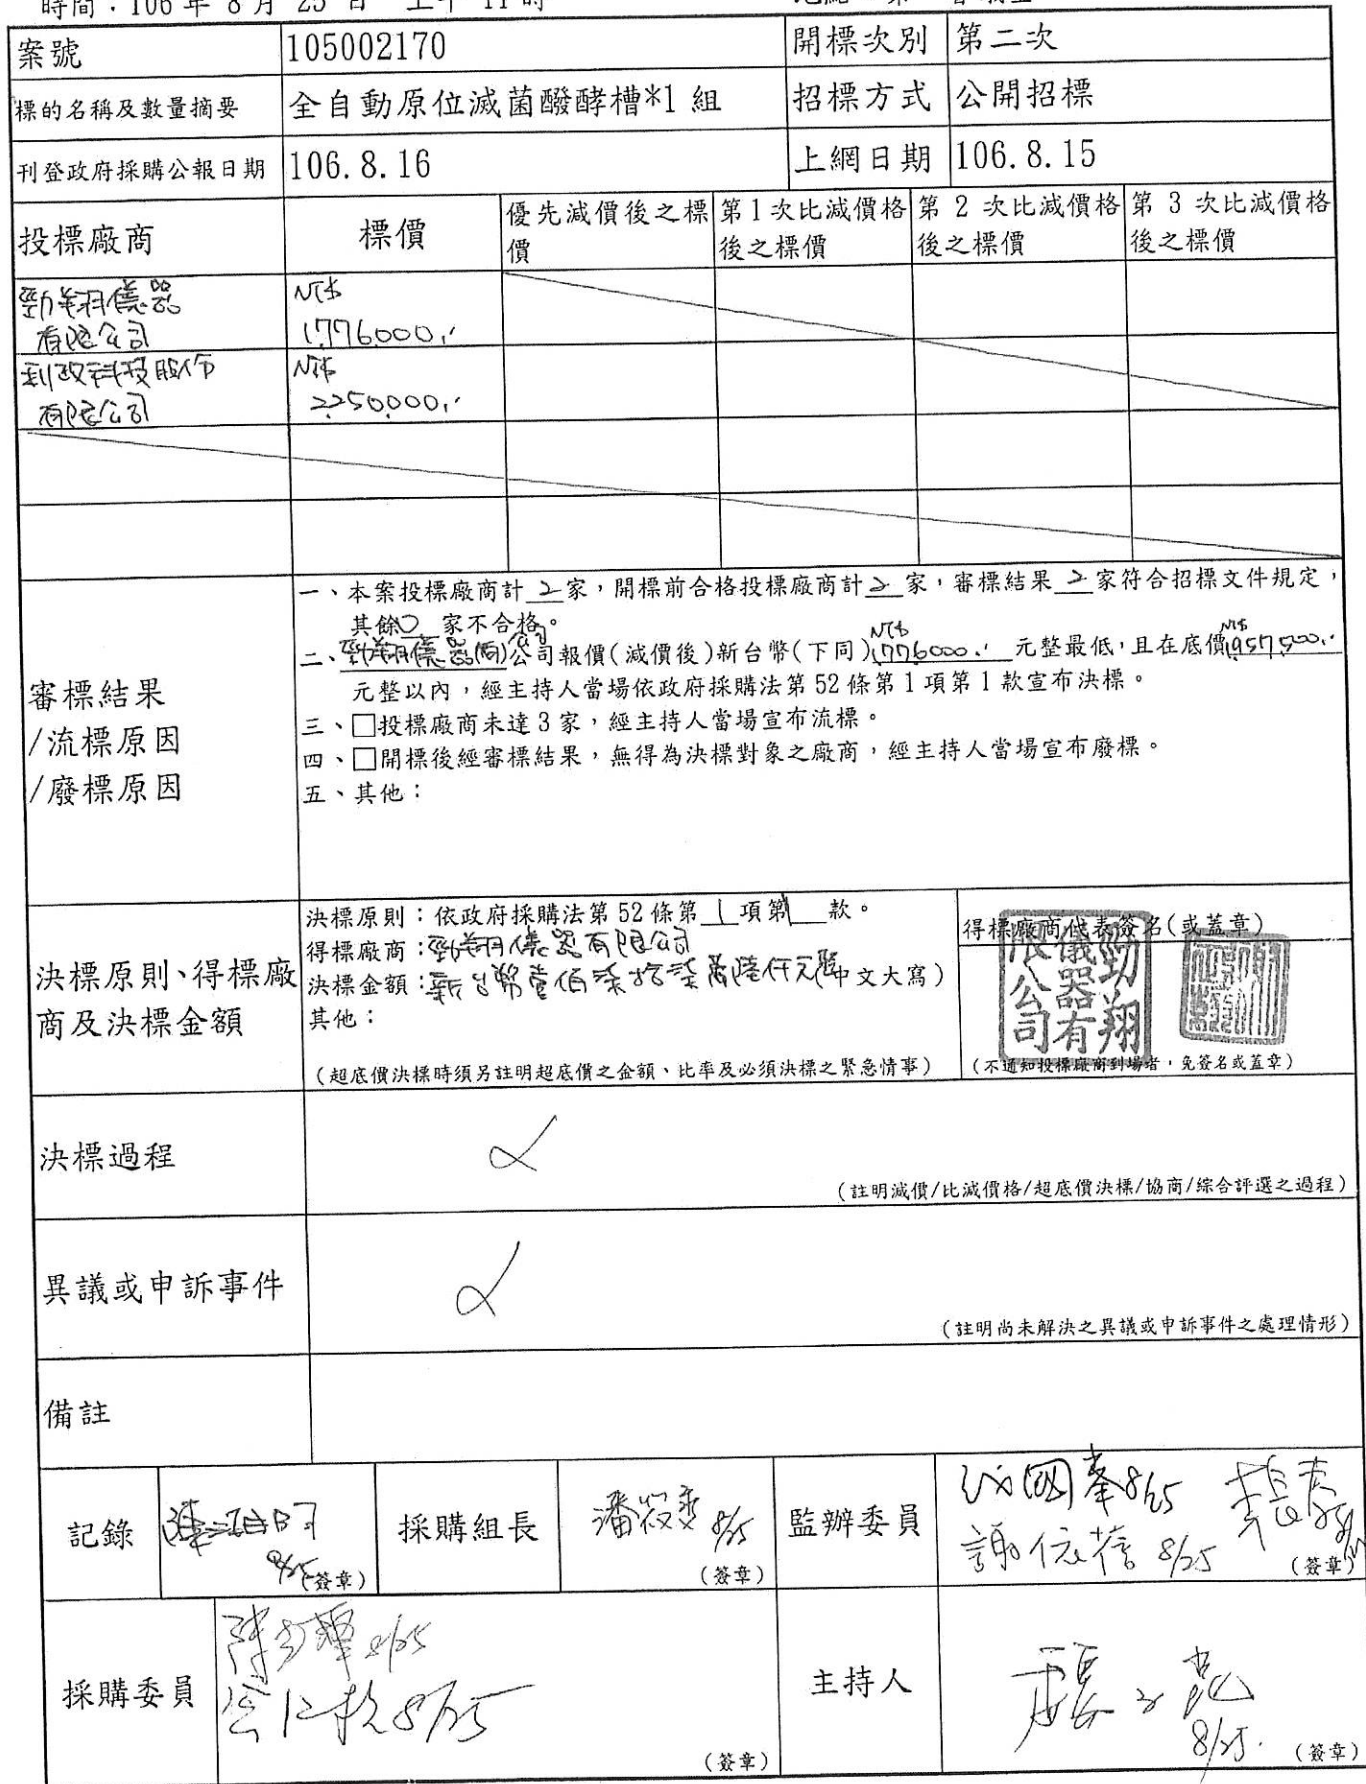 時間：106 年 8 月 25 日 上午 11 時
案號 105002170 開標次別 第二次
標的名稱及數量摘要 全自動原位滅菌醱酵槽*1 組 招標方式 公開招標
刊登政府採購公報日期 106.8.16 上網日期 106.8.15
投標廠商 標價 優先減價後之標價 第1次比減價格後之標價 第 2 次比減價格後之標價 第 3 次比減價格後之標價
勁翔儀器 NT$
有限公司 1,776,000.-
科技股份 NT$
有限公司 2,250,000.-
審標結果
/流標原因
/廢標原因
一、本案投標廠商計 2 家，開標前合格投標廠商計 2 家，審標結果 2 家符合招標文件規定，
其餘 0 家不合格。
二、勁翔儀器(有)公司報價(減價後)新台幣(下同)NT$1,776,000.- 元整最低，且在底價NT$1,957,500.-
元整以內，經主持人當場依政府採購法第 52 條第 1 項第 1 款宣布決標。
三、□投標廠商未達 3 家，經主持人當場宣布流標。
四、□開標後經審標結果，無得為決標對象之廠商，經主持人當場宣布廢標。
五、其他：
決標原則、得標廠
商及決標金額
決標原則：依政府採購法第 52 條第 1 項第 1 款。
得標廠商：勁翔儀器有限公司
決標金額：新台幣壹佰柒拾柒萬陸仟元整(中文大寫)
其他：
(超底價決標時須另註明超底價之金額、比率及必須決標之緊急情事)
得標廠商代表簽名(或蓋章)
勁翔
儀器有
限公司
(不通知投標廠商到場者，免簽名或蓋章)
決標過程
(註明減價/比減價格/超底價決標/協商/綜合評選之過程)
異議或申訴事件
(註明尚未解決之異議或申訴事件之處理情形)
備註
記錄 8/25 (簽章) 採購組長 潘筱雯 8/25 (簽章) 監辦委員 國峯 8/25
謝依蓓 8/25 (簽章)
採購委員 8/25
8/25 (簽章)
主持人 8/25. (簽章)